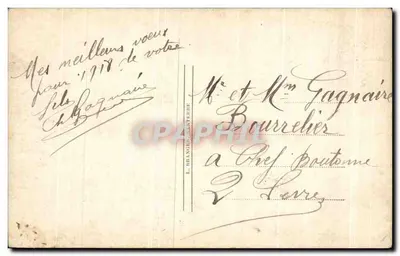 Mes meilleurs voeux
pour 1918 de votre
fils
Ch Gagnaire
Mr et Mm Gagnaire
Bourrelier
a Chef Boutonne
2 Sevres
CPARAMA